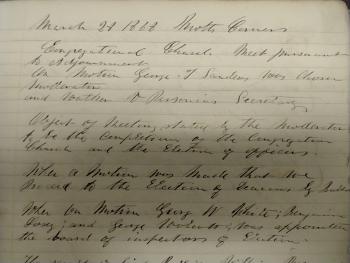 March 28 1868 North Corners
Congregational Church Meet pursuant
to Adjournment
On Motion George T Sanders was chosen
Moderator
and Nathan D Parsonius Secretary
Object of Meeting stated by the Moderator
to be the completion of the Congregation
Church and the Election of officers.
When a Motion was Made that we
Proceed to the Election of Deacons by Ballot
When On Motion George W White; Benjamin
and George was appointed
the board of inspectors of Election.